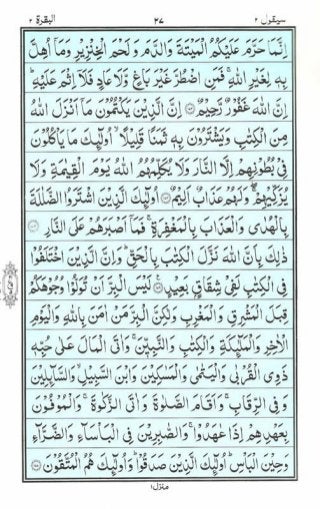 سيقول ٢ ٢٧ البقرة ٢
اِنَّمَا حَرَّمَ عَلَيۡكُمُ الۡمَيۡتَةَ وَالدَّمَ وَلَحۡمَ الۡخِنۡزِيۡرِ وَمَآ اُهِلَّ
بِهٖ لِغَيۡرِ اللّٰهِۚ فَمَنِ اضۡطُرَّ غَيۡرَ بَاغٍ وَّلَا عَادٍ فَلَآ اِثۡمَ عَلَيۡهِؕ
اِنَّ اللّٰهَ غَفُوۡرٌ رَّحِيۡمٌ ۝ اِنَّ الَّذِيۡنَ يَكۡتُمُوۡنَ مَآ اَنۡزَلَ اللّٰهُ
مِنَ الۡکِتٰبِ وَيَشۡتَرُوۡنَ بِهٖ ثَمَنًا قَلِيۡلًاۙ اُولٰٓٮِٕكَ مَا يَاۡكُلُوۡنَ
فِىۡ بُطُوۡنِهِمۡ اِلَّا النَّارَ وَلَا يُکَلِّمُهُمُ اللّٰهُ يَوۡمَ الۡقِيٰمَةِ وَلَا
يُزَکِّيۡهِمۡۖۚ وَلَهُمۡ عَذَابٌ اَلِيۡمٌ ۝ اُولٰٓٮِٕكَ الَّذِيۡنَ اشۡتَرَوُا الضَّلٰلَةَ
بِالۡهُدٰى وَالۡعَذَابَ بِالۡمَغۡفِرَةِۚ فَمَآ اَصۡبَرَهُمۡ عَلَى النَّارِ ۝
ذٰلِكَ بِاَنَّ اللّٰهَ نَزَّلَ الۡکِتٰبَ بِالۡحَـقِّؕ وَاِنَّ الَّذِيۡنَ اخۡتَلَفُوۡا
فِى الۡكِتٰبِ لَفِىۡ شِقَاقٍۢ بَعِيۡدٍ ۝ لَيۡسَ الۡبِرَّ اَنۡ تُوَلُّوۡا وُجُوۡهَكُمۡ
قِبَلَ الۡمَشۡرِقِ وَ الۡمَغۡرِبِ وَلٰـكِنَّ الۡبِرَّ مَنۡ اٰمَنَ بِاللّٰهِ وَالۡيَوۡمِ
الۡاٰخِرِ وَالۡمَلٰٓٮِٕکَةِ وَالۡكِتٰبِ وَالنَّبِيّٖنَۚ وَاٰتَى الۡمَالَ عَلٰى حُبِّهٖ
ذَوِى الۡقُرۡبٰى وَالۡيَتٰمٰى وَالۡمَسٰكِيۡنَ وَابۡنَ السَّبِيۡلِۙ وَالسَّآٮِٕلِيۡنَ
وَفِى الرِّقَابِۚ وَاَقَامَ الصَّلٰوةَ وَاٰتَى الزَّکٰوةَۚ وَالۡمُوۡفُوۡنَ
بِعَهۡدِهِمۡ اِذَا عٰهَدُوۡاۚ وَالصّٰبِرِيۡنَ فِى الۡبَاۡسَآءِ وَالضَّرَّآءِ
وَحِيۡنَ الۡبَاۡسِؕ اُولٰٓٮِٕكَ الَّذِيۡنَ صَدَقُوۡاؕ وَاُولٰٓٮِٕكَ هُمُ الۡمُتَّقُوۡنَ ۝
منزل ١